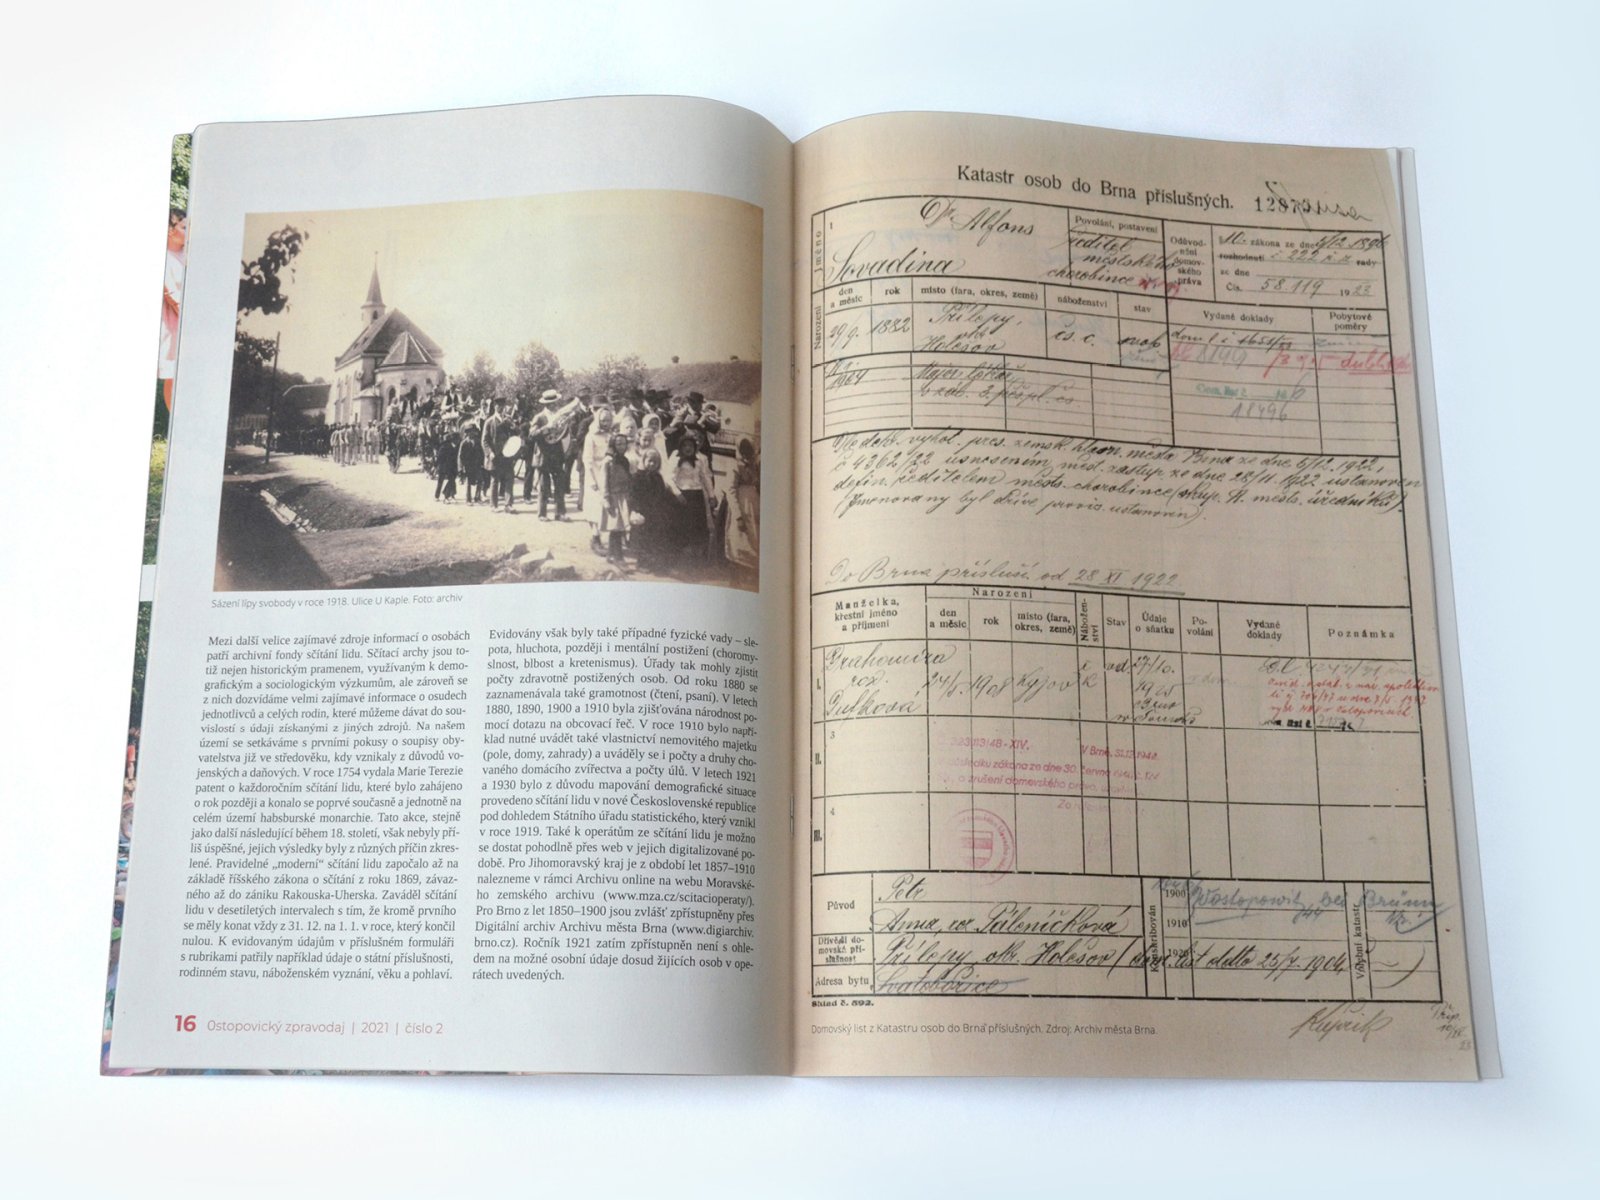 Sázení lípy svobody v roce 1918. Ulice U Kaple. Foto: archiv
Mezi další velice zajímavé zdroje informací o osobách
patří archivní fondy sčítání lidu. Sčítací archy jsou to-
tiž nejen historickým pramenem, využívaným k demo-
grafickým a sociologickým výzkumům, ale zároveň se
z nich dozvídáme velmi zajímavé informace o osudech
jednotlivců a celých rodin, které můžeme dávat do sou-
vislostí s údaji získanými z jiných zdrojů. Na našem
území se setkáváme s prvními pokusy o soupisy oby-
vatelstva již ve středověku, kdy vznikaly z důvodů vo-
jenských a daňových. V roce 1754 vydala Marie Terezie
patent o každoročním sčítání lidu, které bylo zahájeno
o rok později a konalo se poprvé současně a jednotně na
celém území habsburské monarchie. Tato akce, stejně
jako další následující během 18. století, však nebyly pří-
liš úspěšné, jejich výsledky byly z různých příčin zkres-
lené. Pravidelné „moderní“ sčítání lidu započalo až na
základě říšského zákona o sčítání z roku 1869, závaz-
ného až do zániku Rakouska-Uherska. Zaváděl sčítání
lidu v desetiletých intervalech s tím, že kromě prvního
se měly konat vždy z 31. 12. na 1. 1. v roce, který končil
nulou. K evidovaným údajům v příslušném formuláři
s rubrikami patřily například údaje o státní příslušnosti,
rodinném stavu, náboženském vyznání, věku a pohlaví.
Evidovány však byly také případné fyzické vady – sle-
pota, hluchota, později i mentální postižení (choromy-
slnost, blbost a kretenismus). Úřady tak mohly zjistit
počty zdravotně postižených osob. Od roku 1880 se
zaznamenávala také gramotnost (čtení, psaní). V letech
1880, 1890, 1900 a 1910 byla zjišťována národnost po-
mocí dotazu na obcovací řeč. V roce 1910 bylo napří-
klad nutné uvádět také vlastnictví nemovitého majetku
(pole, domy, zahrady) a uváděly se i počty a druhy cho-
vaného domácího zvířectva a počty úlů. V letech 1921
a 1930 bylo z důvodu mapování demografické situace
provedeno sčítání lidu v nové Československé republice
pod dohledem Státního úřadu statistického, který vznikl
v roce 1919. Také k operátům ze sčítání lidu je možno
se dostat pohodlně přes web v jejich digitalizované po-
době. Pro Jihomoravský kraj je z období let 1857–1910
nalezneme v rámci Archivu online na webu Moravské-
ho zemského archivu (www.mza.cz/scitacioperaty/).
Pro Brno z let 1850–1900 jsou zvlášť zpřístupněny přes
Digitální archiv Archivu města Brna (www.digiarchiv.
brno.cz). Ročník 1921 zatím zpřístupněn není s ohle-
dem na možné osobní údaje dosud žijících osob v ope-
rátech uvedených.
16 Ostopovický zpravodaj | 2021 | číslo 2
Katastr osob do Brna příslušných.
Jméno
1
Dr Alfons
Sovadina
Povolání, postavení
ředitel
městského
chorobince
Odůvod-
nění
domov-
ského
práva
zákona ze dne
rozhodnutí
rady
ze dne
Čís. 58.119 1923
Narození
den
a měsíc
rok
místo (fara, okres, země)
náboženství
stav
Vydané doklady
Pobytové
poměry
29/9. 1882
Přílepy,
Holešov
čs. c.
18496
č 4362/22 usnesením měst. zastup. ze dne 28/11 1922 ustanoven
defin. ředitelem městs. chorobince
(Jmenovaný byl dříve provis. ustanoven).
Do Brna přísluší od 28 XI 1922
Manželka,
křestní jméno
a příjmení
Narození
den
a měsíc
rok
místo (fara,
okres, země)
Nábožen-
ství
Stav
Údaje
o sňatku
Po-
volání
Vydané
doklady
Poznámka
I.
roz.
1908
Kyjov
II.
3
V Brně, 31.12.1948
zákona ze dne 30. června
o zrušení domovského práva
III.
4
Původ
Petr
Anna, roz. Páleníčková
Dřívější do-
movská pří-
slušnost
Přílepy, okr. Holešov (dom. list ddto 25/7. 1904)
Adresa bytu
Svatobořice
Konskribován
1900
1910
1920
Volební katastr
Brünn
Sklad č. 592.
Domovský list z Katastru osob do Brna příslušných. Zdroj: Archiv města Brna.